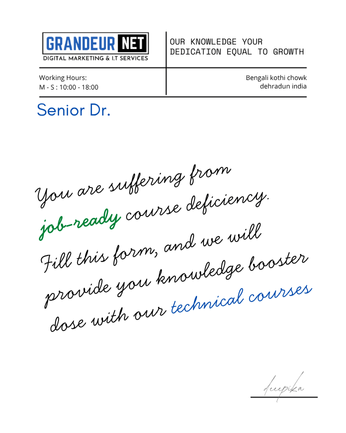 GRANDEUR NET
DIGITAL MARKETING & I.T SERVICES
OUR KNOWLEDGE YOUR
DEDICATION EQUAL TO GROWTH
Working Hours:
M - S : 10:00 - 18:00
Bengali kothi chowk
dehradun india
Senior Dr.
You are suffering from
job-ready course deficiency.
Fill this form, and we will
provide you knowledge booster
dose with our technical courses
deepika